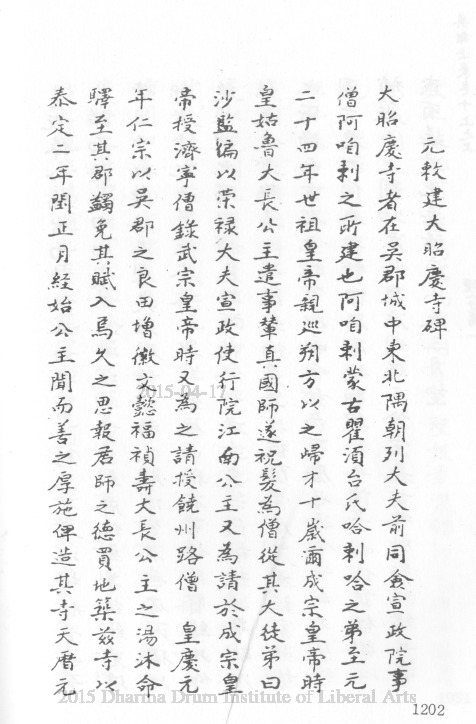 元敕建大昭慶寺碑
大昭慶寺者在吳郡城中東北隅朝列大夫前同僉宣政院事
僧阿咱剌之所建也阿咱剌蒙古瞿須台氏哈剌哈之弟至元
二十四年世祖皇帝親巡朔方以之歸才十歲爾成宗皇帝時
皇姑魯大長公主遣事輦真國師遂祝髮為僧從其大徒弟曰
沙監編以榮祿大夫宣政使行院江南公主又為請於成宗皇
帝授濟寧僧錄武宗皇帝時又為之請授饒州路僧 皇慶元
年仁宗以吳郡之良田增徽文懿福禎壽大長公主之湯沐命
驛至其郡蠲免其賦入焉久之思報君師之德買地築茲寺以
泰定二年閏正月經始公主聞而善之厚施俾造其寺天曆元
2015-04-17
2015 Dharma Drum Institute of Liberal Arts
1202